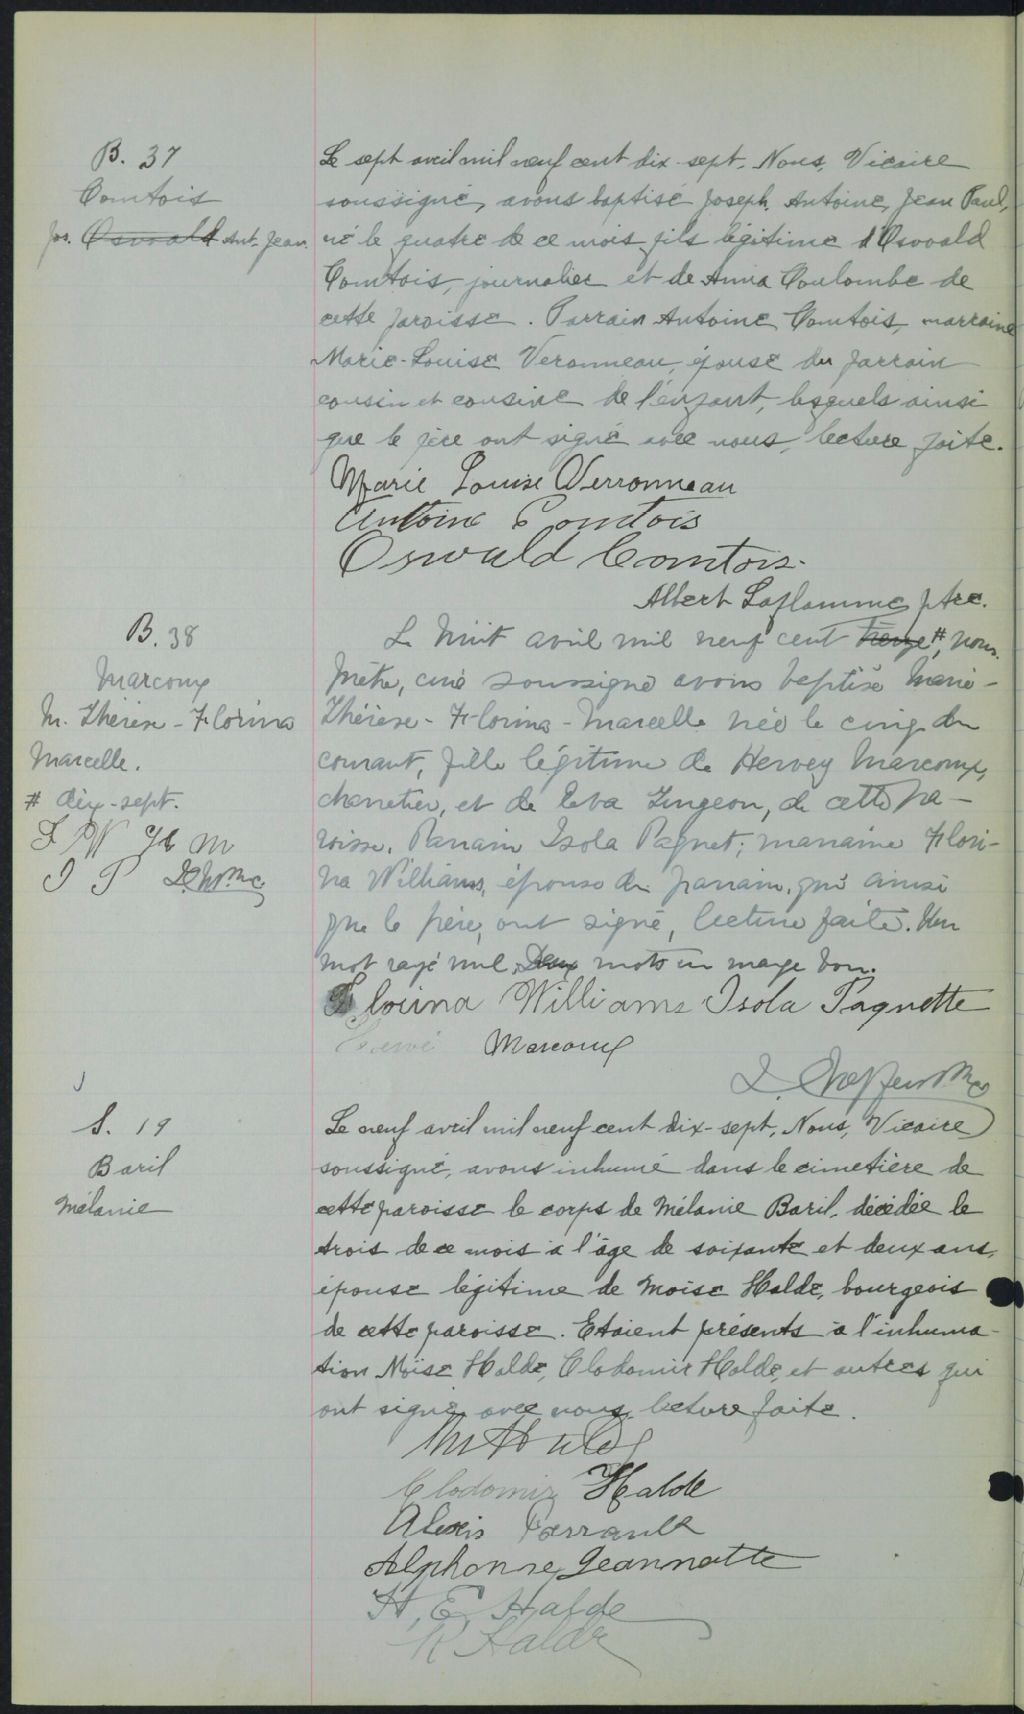 B. 37
Comtois
Jos. Osvvald Ant. Jean.
Le sept avril mil neuf cent dix-sept, Nous, Vicaire
soussigné, avons baptisé Joseph, Antoine, Jean Paul,
né le quatre de ce mois fils légitime d'Osvvald
Comtois, journalier et de Anna Coulombe de
cette paroisse. Parrain Antoine Comtois, marraine
Marie-Louise Veronneau, épouse du parrain
cousin et cousine de l'enfant, lesquels ainsi
que le père ont signé avec nous, lecture faite.
Marie Louise Verronneau
Antoine Comtois
Oswald Comtois.
Albert Laflamme ptre.
B. 38
Marcoux
M. Thérèse - Florina
Marcelle.
# dix-sept.
F W H M
I P
Le huit avril mil neuf cent treize #, nous
prêtre, curé soussigné avons baptisé Marie-
Thérèse - Florina - Marcelle née le cinq du
courant, fille légitime de Hervey Marcoux,
charretier, et de Eva Turgeon, de cette pa-
roisse. Parrain Isola Paquet; marraine Flori-
na Williams, épouse du parrain, qui ainsi
que le père, ont signé, lecture faite. Un
mot rayé nul. Deux mots en marge bon.
Florina Williams Isola Paquette
Hervé Marcoux
S. 19
Baril
Mélanie
Le neuf avril mil neuf cent dix-sept, Nous, Vicaire
soussigné, avons inhumé dans le cimetière de
cette paroisse le corps de Mélanie Baril, décédée le
trois de ce mois à l'âge de soixante et deux ans,
épouse légitime de Moïse Halde, bourgeois
de cette paroisse. Etaient présents à l'inhuma-
tion Moïse Halde, Clodomir Halde, et autres qui
ont signé avec nous, lecture faite.
M Halde
Clodomir Halde
Alexis Perrault
Alphonse Jeannotte
H. E. Halde
R Halde